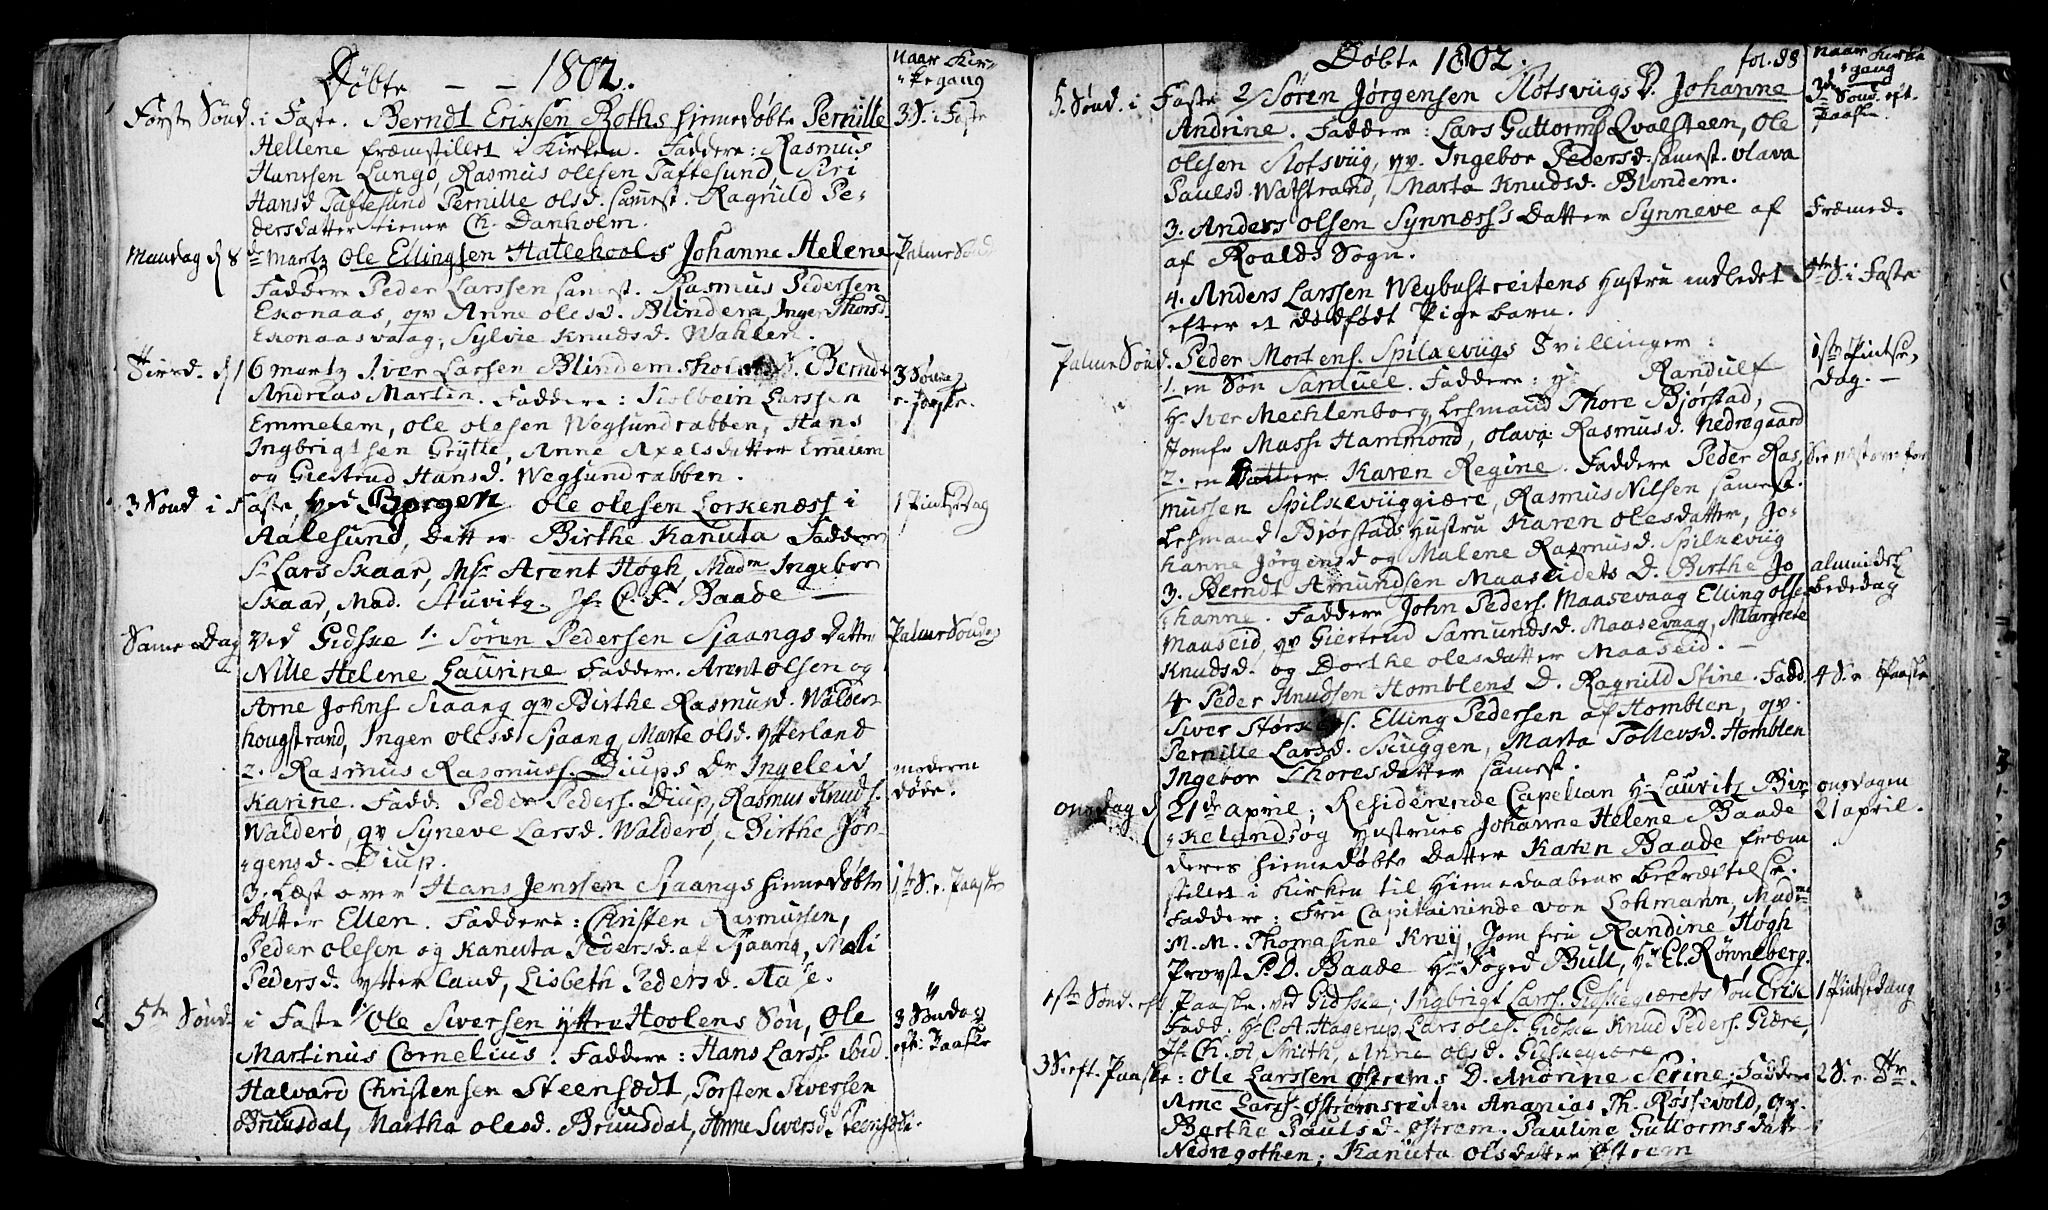 Døbte - - 1802.
naar Kir-
kegang
Første Sønd. i Faste. Berndt Eriksen Roths hiemedøbte Pernille
3 S. i Faste
Hellene fræmstillet i Kirken. Faddere: Rasmus
Hanssen Langø, Rasmus Olesen Taftesund, Siri
Hansd Taftesund Pernille olsd. samest. Ragnild Pe-
dersdatter tiener Ch. Danholm.
Mandag d 8de Martz Ole Ellingsen Hatlehools Johanne Helene
Palme Sønd
Faddere Peder Larssen samest. Rasmus Pedersen
Exonaas, qv Anne olesd. Blindem, Inger Thorsd.
Exonaasvaag, Sylvie Knudsd. Wahlen.
Tiirsd. d 16 martz Iver Larsen Blindemsholms S. Berndt
3 Sønd
e. Paaske.
Andreas Martin. Faddere: Kolbein Larssen
Emmelem, ole olesen Wegsundrabben, Hans
Ingbrigtsen Grytte, Anne Axelsdatter Emelem
og Giertrud Hansd. Wegsundrabben.
3 Sønd i Faste, ved Borgen Ole olesen Lorkenæss i
1 Pintsedag
Aalesund, Datter Birthe Kanuta Faddere
Sr Lars Skaar, Msr Arent Høgh, Madm Ingebor
Skaar, Mad. Stuvitz. Jf. C. F. Baade —
Same Dag ved Gidske 1. Søren Pedersen Sjaangs Datter
Palme Søndag
Nille Helene Laurine Faddere. Arent olsen og
Arne Johns Siaang qv Birthe Rasmusd. Walder-
hougstrand, Inger olesd Sjaang, Marte olsd. ytterland
2. Rasmus Rasmuss. Diups Dr Ingeleiv
moderen
døde.
Karine. Fadd. Peder Peders. Diup, Rasmus Knuds.
Walderø, qv Syneve Larsd. Walderø, Birthe Jør-
gensd. Diup.
3. Læst over Hans Jenssen Sjaangs hiemedøbte
1ste S. e. Paaske
Datter Ellen. Faddere: Christen Rasmussen,
Peder olesen og Kanuta Pedersd. af Sjaang, Mali
Pedersd. ytterland, Lisbeth Pedersd. Aase.
5te Sønd. i Faste 1/ Ole Siversen yttre Hoolens Søn, Ole
3 Søndag
eft: Paaske
Martinus Cornelius. Faddere: Hans Larss. ibid.
Halvard Christensen Steensædt, Torsten Siversen
Bruusdal, Martha olesd. Bruusdal, Anne Siversd. Steensædt.
Døbte 1802.
fol. 98
naar Kirke
gang
5. Sønd. i Faste 2/ Søren Jørgensen Slotsviigs D. Johanne
3de Sønd. eft.
Paaske.
Andrine. Faddere: Lars Guttorms Qvalsteen, Ole
Olesen Slotsviig, qv. Ingebor Pedersd. samest. olava
Paulsd. Watstrand, Marta Knudsd. Blindem.
3. Anders olsen Synnæss's Datter Synneve af
Fræmed.
af Roalds Sogn.
4. Anders Larssen Weybustreitens Hustru indledet
S. i Faste
efter et dødfødt Pige barn.
Palme Sønd. Peder Mortens. Spilkeviigs Tvillinger:
1ste Pintse-
dag. —
1. en Søn Samuel. Faddere: Randulf
Hr Iver Mechlenborg, Lesmand Thore Bjørstad,
Jomfr Masse Hammond, olava Rasmusd. Nedregaard
2. en Datter Karen Regine. Faddere Peder Ras,
mussen Spilkeviiggiære, Rasmus Nilsen samest.
Lesmand Bjørstads Hustru Karen olesdatter, Jo-
hanne Jørgensd og Malene Rasmusd. Spilkeviig
3. Berndt Amundsen Maaseidets D. Birthe Jo
almindel
Bededag
hanne. Faddere John Peders. Maasevaag Elling olse
Maaseid, qv Giertrud Samundsd. Maasevaag, Margrete
Knudsd. og Dorthe olesdatter Maaseid. —
4 Peder Knudsen Homblens D. Ragnild Stine. Fadd
4 S. e Paaske
Siver Størkers. Elling Pedersen af Homblen, qv.
Pernille Larsd. Skuggen, Marta Tollevsd. Homblen
Ingebor Thoresdatter samest.
Onsdag d 21de april; Residerende Capellan Hr Lauritz Bir,
onsdagen
21 april.
kelunds og Hustrues Johanne Helene Baade
deres hiemedøbte Datter Karen Baade fræm
stillet i Kirken til Hiemedaabens bekræftelse.
Faddere: Fru Capitaininde von Lohmann, Madme
M. M. Thomasine Krøÿ, Jomfru Randine Høgh
Provst P. D. Baade Hr Foged Bull, Hr El. Rønneberg.
1ste Sønd. eft Paaske, ved Gidske; Ingbrigt Larss. Gidskegiærets Søn Erik
1 Pintsedag
Fadd. Hr C. A. Hagerup, Lars oles. Gidske Knud Peders. Giære,
Jf. Ch. A. Smith, Anne olsd. Gidskegiære
3 S. eft. Paaske: Ole Larssen Østrems D. Andrine Serine; Faddere
2 S. e. Str.
Arne Larss. Østremsreiten Ananias Th. Rossevold, qv.
Berthe Paulsd. østrem. Pauline Guttormsdatter
Nedregothen; Kanuta olsdatter Østrem